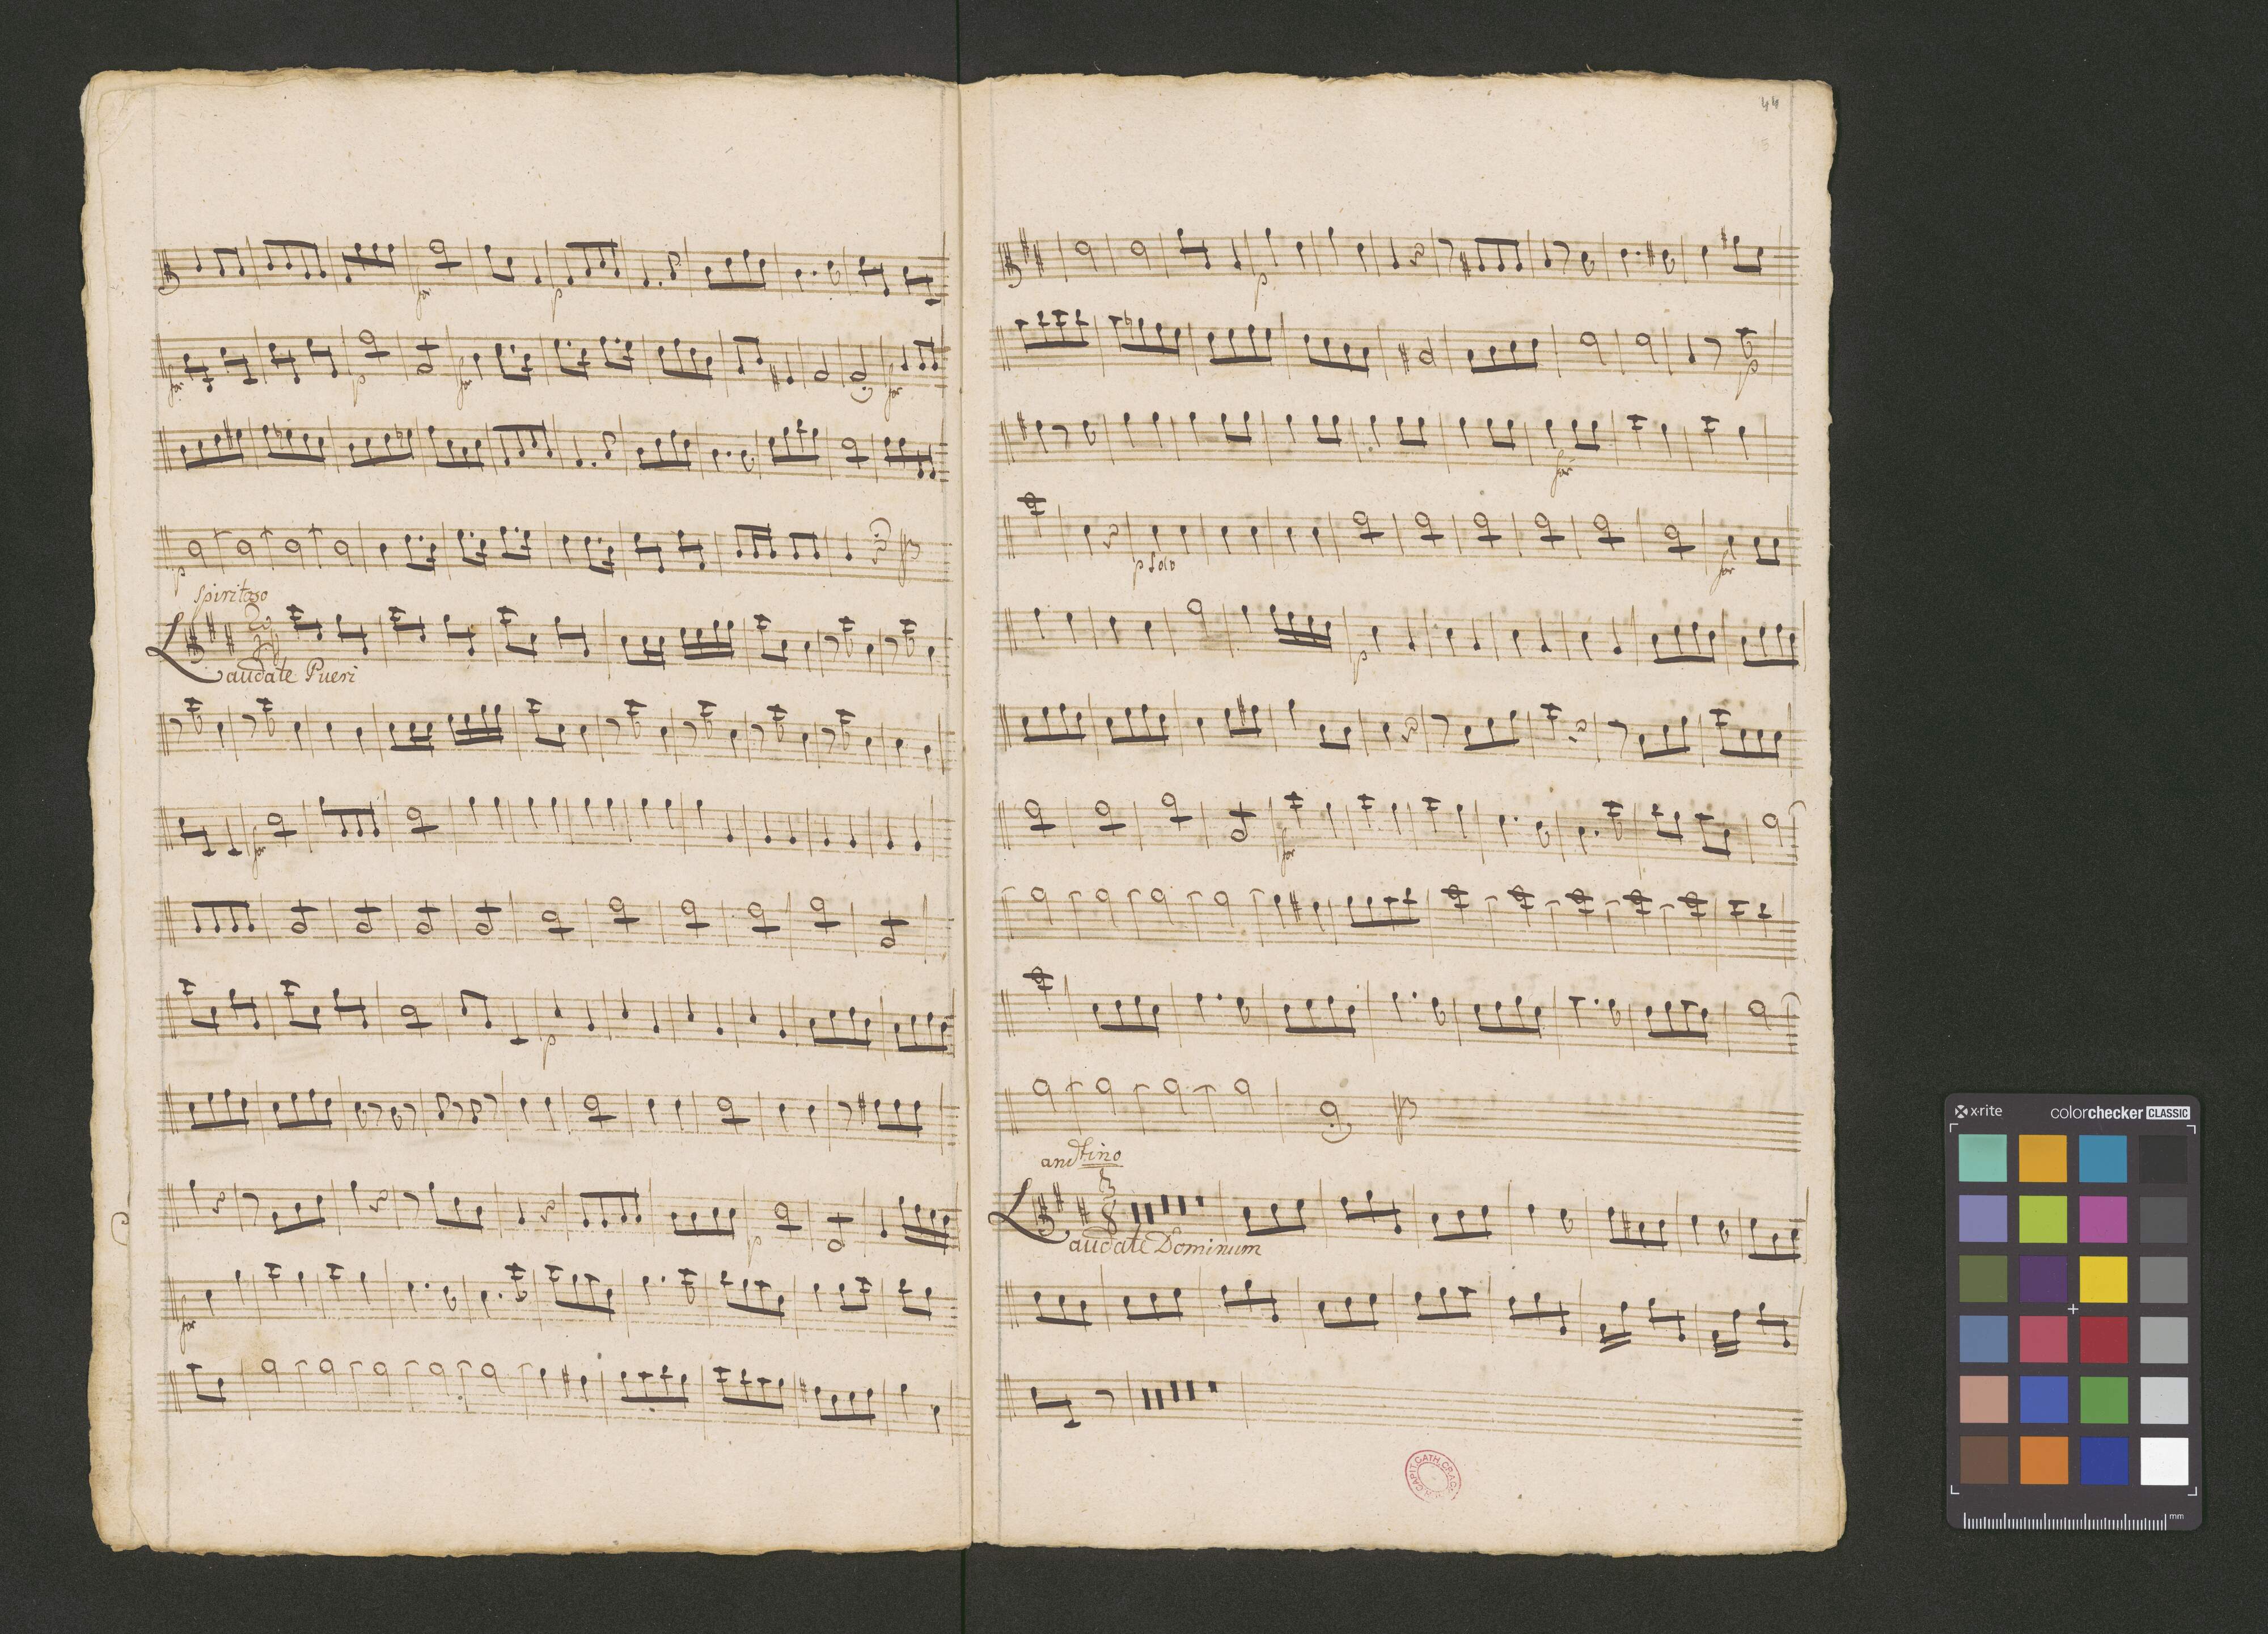 for
p
for
p
for
for
p
Spiritoso
Laudate Pueri
for
p
p
for
44
p
p
for
p Solo
for
p
for
andtino
3
8
Laudate Dominum
CAPIT. CATH. CRAC
x-rite
colorchecker CLASSIC
mm